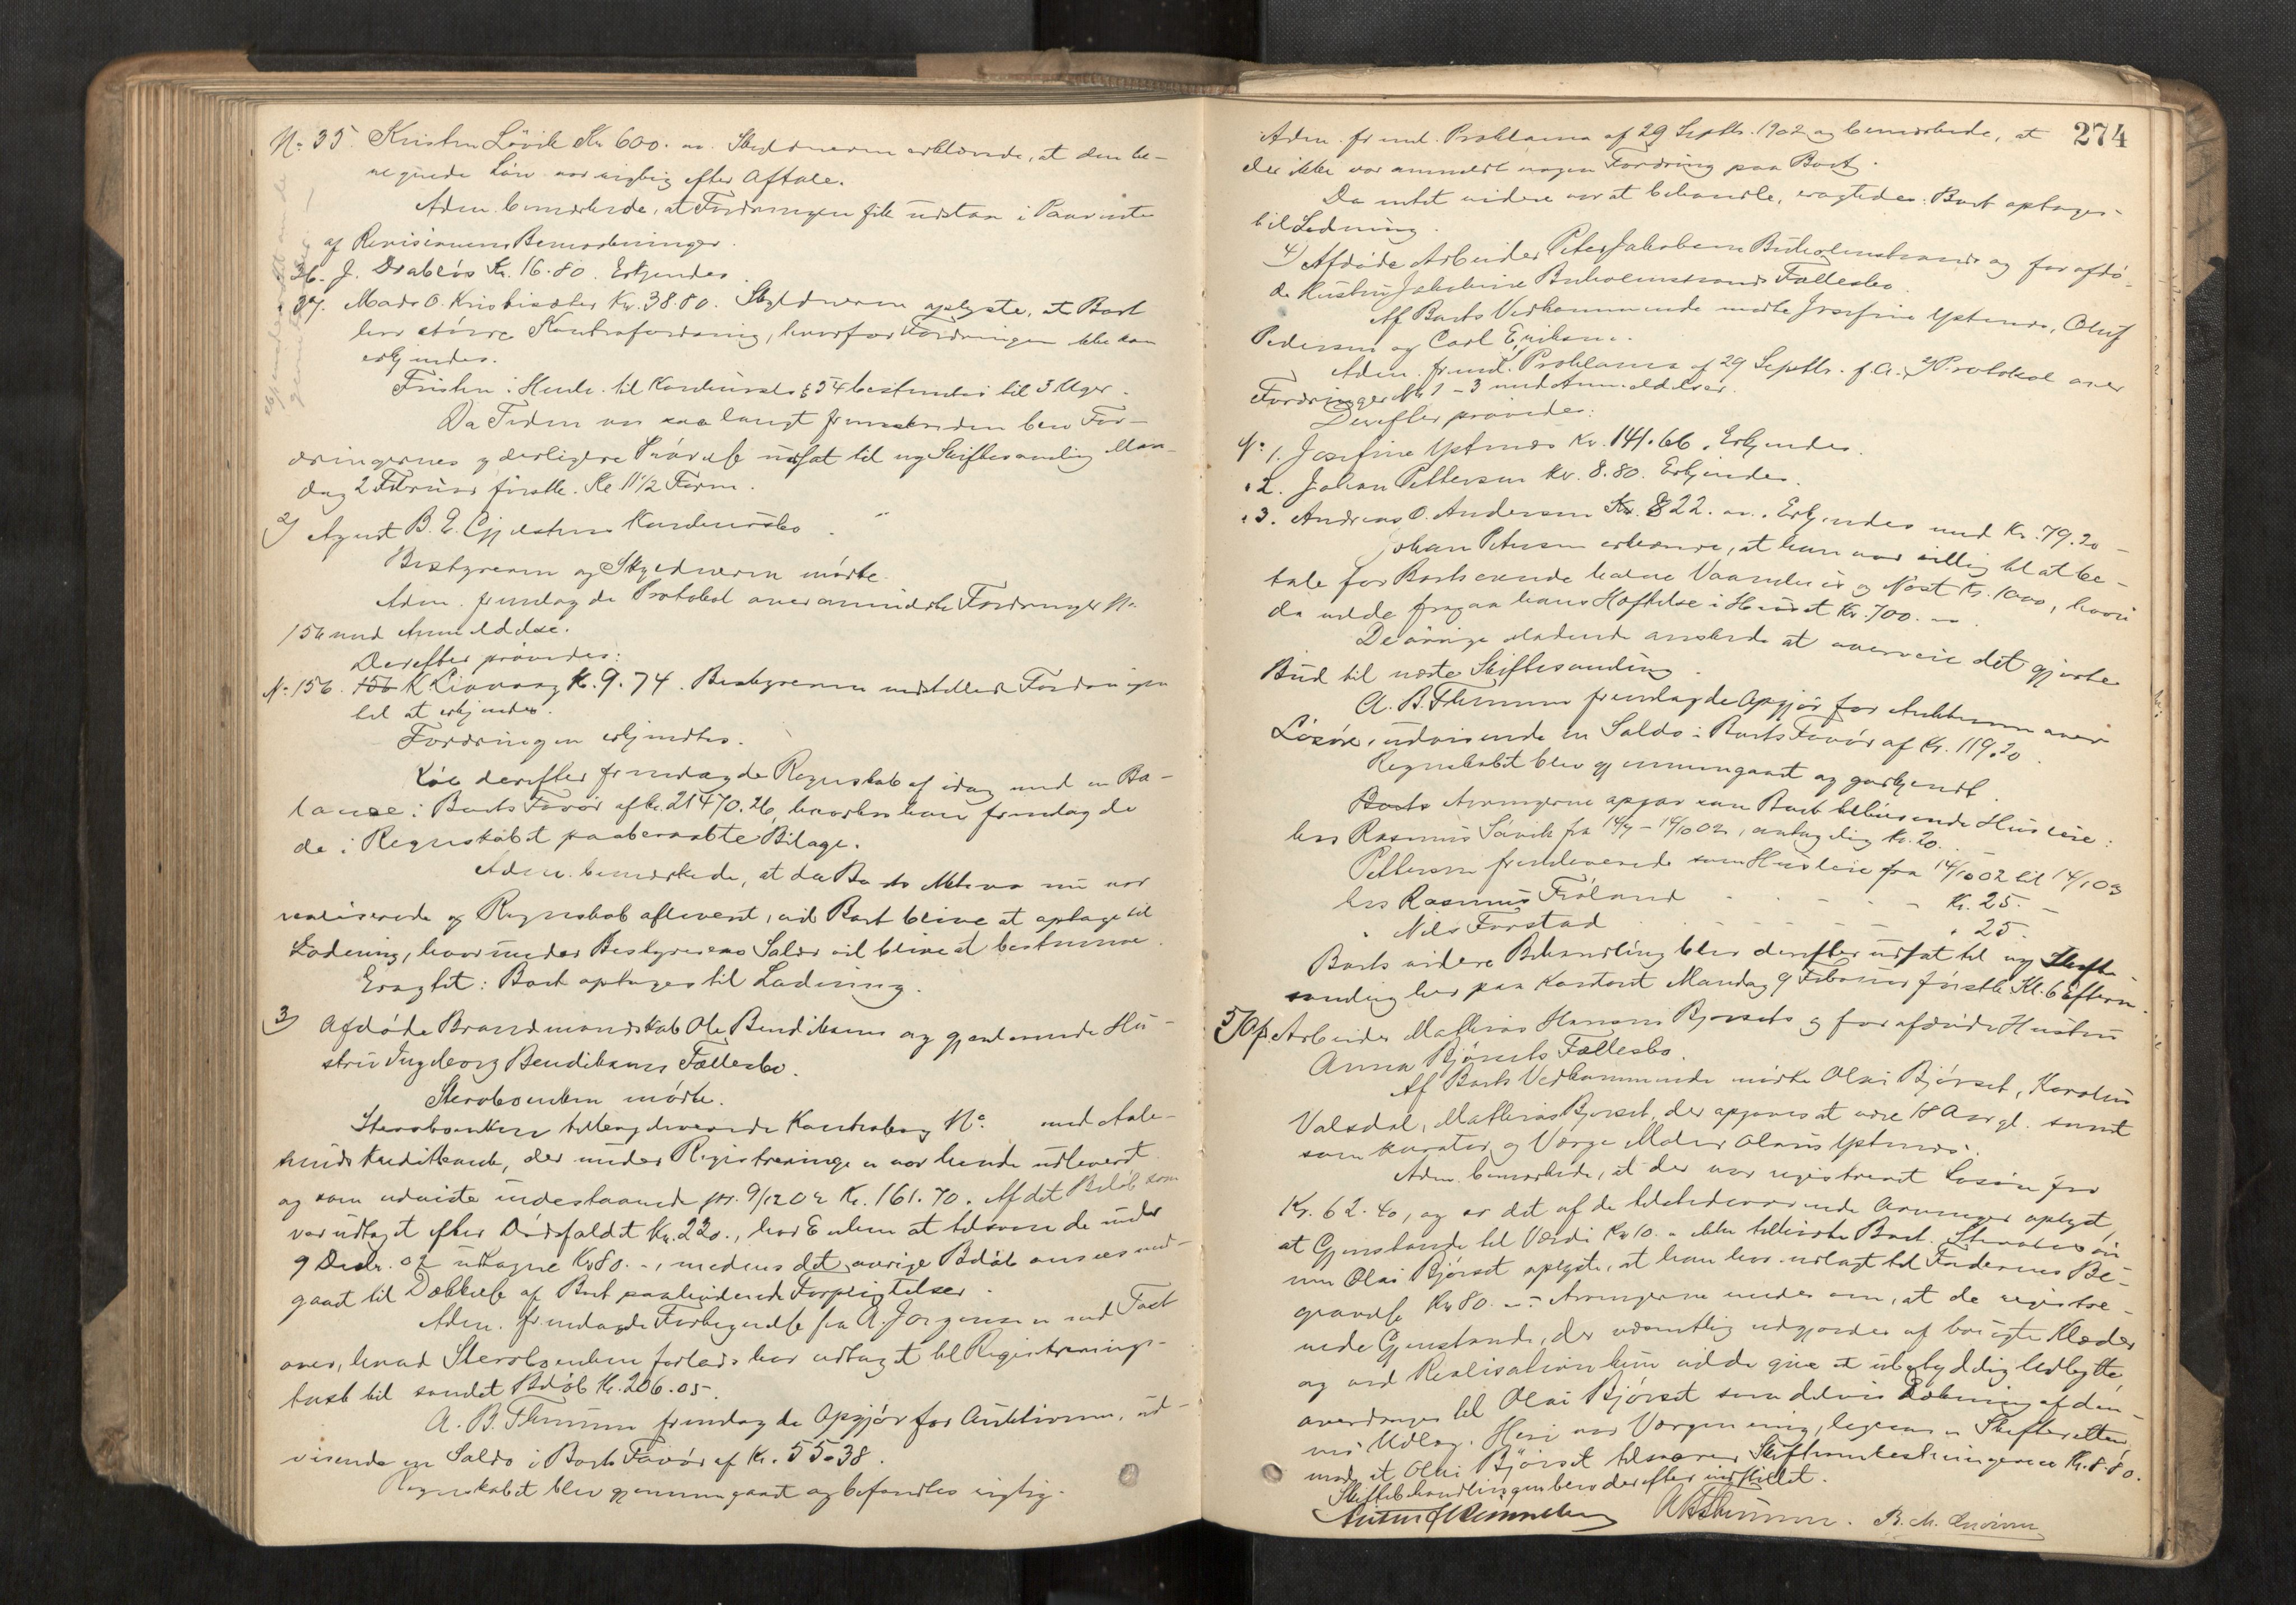 No 35. Kristen Lövik Kr. 600. Skyldneren erklærede, at den be-
regnede Løn var rigtig efter Aftale.
Adm. bemærkede, at Fordringen fik udstaa i Paavente
af Revisionens Bemærkninger.
36. J. Drabløs Kr. 16.80. Erkjendes.
37. Mads O. Kr. 38.80. Skyldneren oplyste, at Boet
har større Kontrafordring, hvorfor Fordringen ikke kan
erkjendes.
Fristen i Henh. til Konkursl. § 54 bestemtes til 3 Uger.
Da Tiden var saa langt fremskreden blev For-
dringernes yderligere Prøvelse udsat til ny Skiftesamling Man-
dag 2 Februar førstk. Kl. 11 1/2 Form.
2) Agent B. E. Gjelstens Konkursbo.
Bestyreren og Skyldneren mødte.
Adm. fremlagde Protokol over anmeldte Fordringer No
156 med Anmeldelse.
Derefter prøvedes:
No 156. K Liavaag Kr. 9.74. Bestyreren indstillede Fordringen
til at erkjendes.
Fordringen erkjendtes.
derefter fremlagde Regnskab af idag med en Ba-
lance i Boets Favør af Kr. 21470.26, hvorhos han fremlagde
de i Regnskabet paaberaabte Bilage.
Adm. bemærkede, at da Boets Aktiva nu var
realiserede og Regnskab afleveret, vil Boet blive at optage til
Lodning, hvorunder Bestyrerens Salær vil blive at bestemme.
Eragtet: Boet optages til Lodning.
3) Afdøde Brandmandskab Ole Bendiksens og gjenlevende Hu-
stru Ingeborg Bendiksens Fællesbo.
Sterboenken mødte.
Sterboenken tilbageleverede Kontrabog No med Aale-
sunds Kreditbank, der under Registreringen var hende udleveret
og som udviste indestaaende pr. 9/12 02 Kr. 161.70. Af det Beløb som
var udtaget efter Dødsfaldet Kr. 220., har Enken at tilsvare de under
9 Decbr. 02 udtagne Kr 80. -, medens det øvrige Beløb ansees med-
gaaet til Dækkelse af Boet paahvilende Forpligtelser.
Adm. fremlagde Fortegnelse fra A. Jørgensen med Tact
over, hvad Sterboenken forlods har udtaget til Registrerings-
taxt til samlet Beløb Kr. 206.05.
A. B. Thunem fremlagde Opgjør for Auktionen, ud-
visende en Saldo i Boets Favør af Kr. 55.38.
Regnskabet blev gjennemgaaet og befandtes rigtig.
274
Adm. freml. Proklama af 29 Septbr. 1902 og bemærkede, at
der ikke var anmeldt nogen Fordring paa Boet.
Da intet videre var at behandle, eragtedes: Boet optages
til Lodning.
4) Afdøde Arbeider Peter Jakobsen Buholmstrands og forafdø-
de Hustru Jakobine Buholmstrands Fællesbo.
Af Boets Vedkommende mødte Josefine Ystenes, Oluf
Pedersen og Carl Eriksen.
Adm. freml. Proklama af 29 Septbr. f. A. og Protokol over
Fordringer No 1 - 3 med Anmeldelser.
Derefter prøvedes:
No 1. Josefine Ystenes Kr. 141.66. Erkjendes.
" 2. Johan Pettersen Kr. 8.80. Erkjendes.
" 3. Andreas O. Andersen Kr. 822. Erkjendes med Kr. 79.20 -
Johan Petersen erklærede, at han var villig til at be-
tale for Boets Vaaningshus og Nøst Kr. 1000, hvori
da vilde fragaa hans Heftelse i Huset Kr. 700. -
De øvrige Mødende ønskede at overveie det gjorte
Bud til næste Skiftesamling.
A. B. Thunem fremlagde Opgjør for Auktionen over
Løsøre, udvisende en Saldo i Boets Favør af Kr. 119.20.
Regnskabet blev gjennemgaaet og godkjendt.
Arvingerne opgav som Boet tilkommende Husleie:
hos Rasmus Løvik fra 14/7 - 14/10 02, antagelig Kr. 20.
Pettersen fremleverede som Husleie fra 14/10 02 til 14/1 03
hos Rasmus Frøland Kr. 25. -
" Nils Forstad " 25.
Boets videre Behandling blev derefter udsat til ny Skifte-
samling her paa Kontoret Mandag 9 Februar førstk. Kl. 6 Efterm.
5) Arbeider Mathias Hansens Bjørsets og forafdøde Hustru
Anna Bjørsets Fællesbo.
Af Boets Vedkommende mødte Olai Bjørset, Karoline
Valsdal, Mathias Bjørset, der opgaves at være 18 Aar gl. samt
som Kurator og Værge Maler Olaus Ystenes.
Adm. bemærkede, at der var registreret Løsøre for
Kr. 62.40, og er det af de tilstedeværende Arvinger oplyst,
at Gjenstande til Værdi Kr 10. - ikke tilhørte Boet.
Olai Bjørset oplyste, at han har udlagt til Faderens Be-
gravelse Kr 80. - Arvingerne enedes om, at de registre-
rede Gjenstande, der væsentlig udgjordes af brugte Klæder
og ved Realisation kun vilde give et ubetydelig Udbytte,
overdrages til Olai Bjørset som delvis Dækning af den-
nes Udlæg. Heri var Værgen enig, ligesom Skifteretten,
mod at Olai Bjørset tilsvarer Skifteomkostningerne Kr. 8.80.
Skiftebehandlingen blev derefter indstillet.